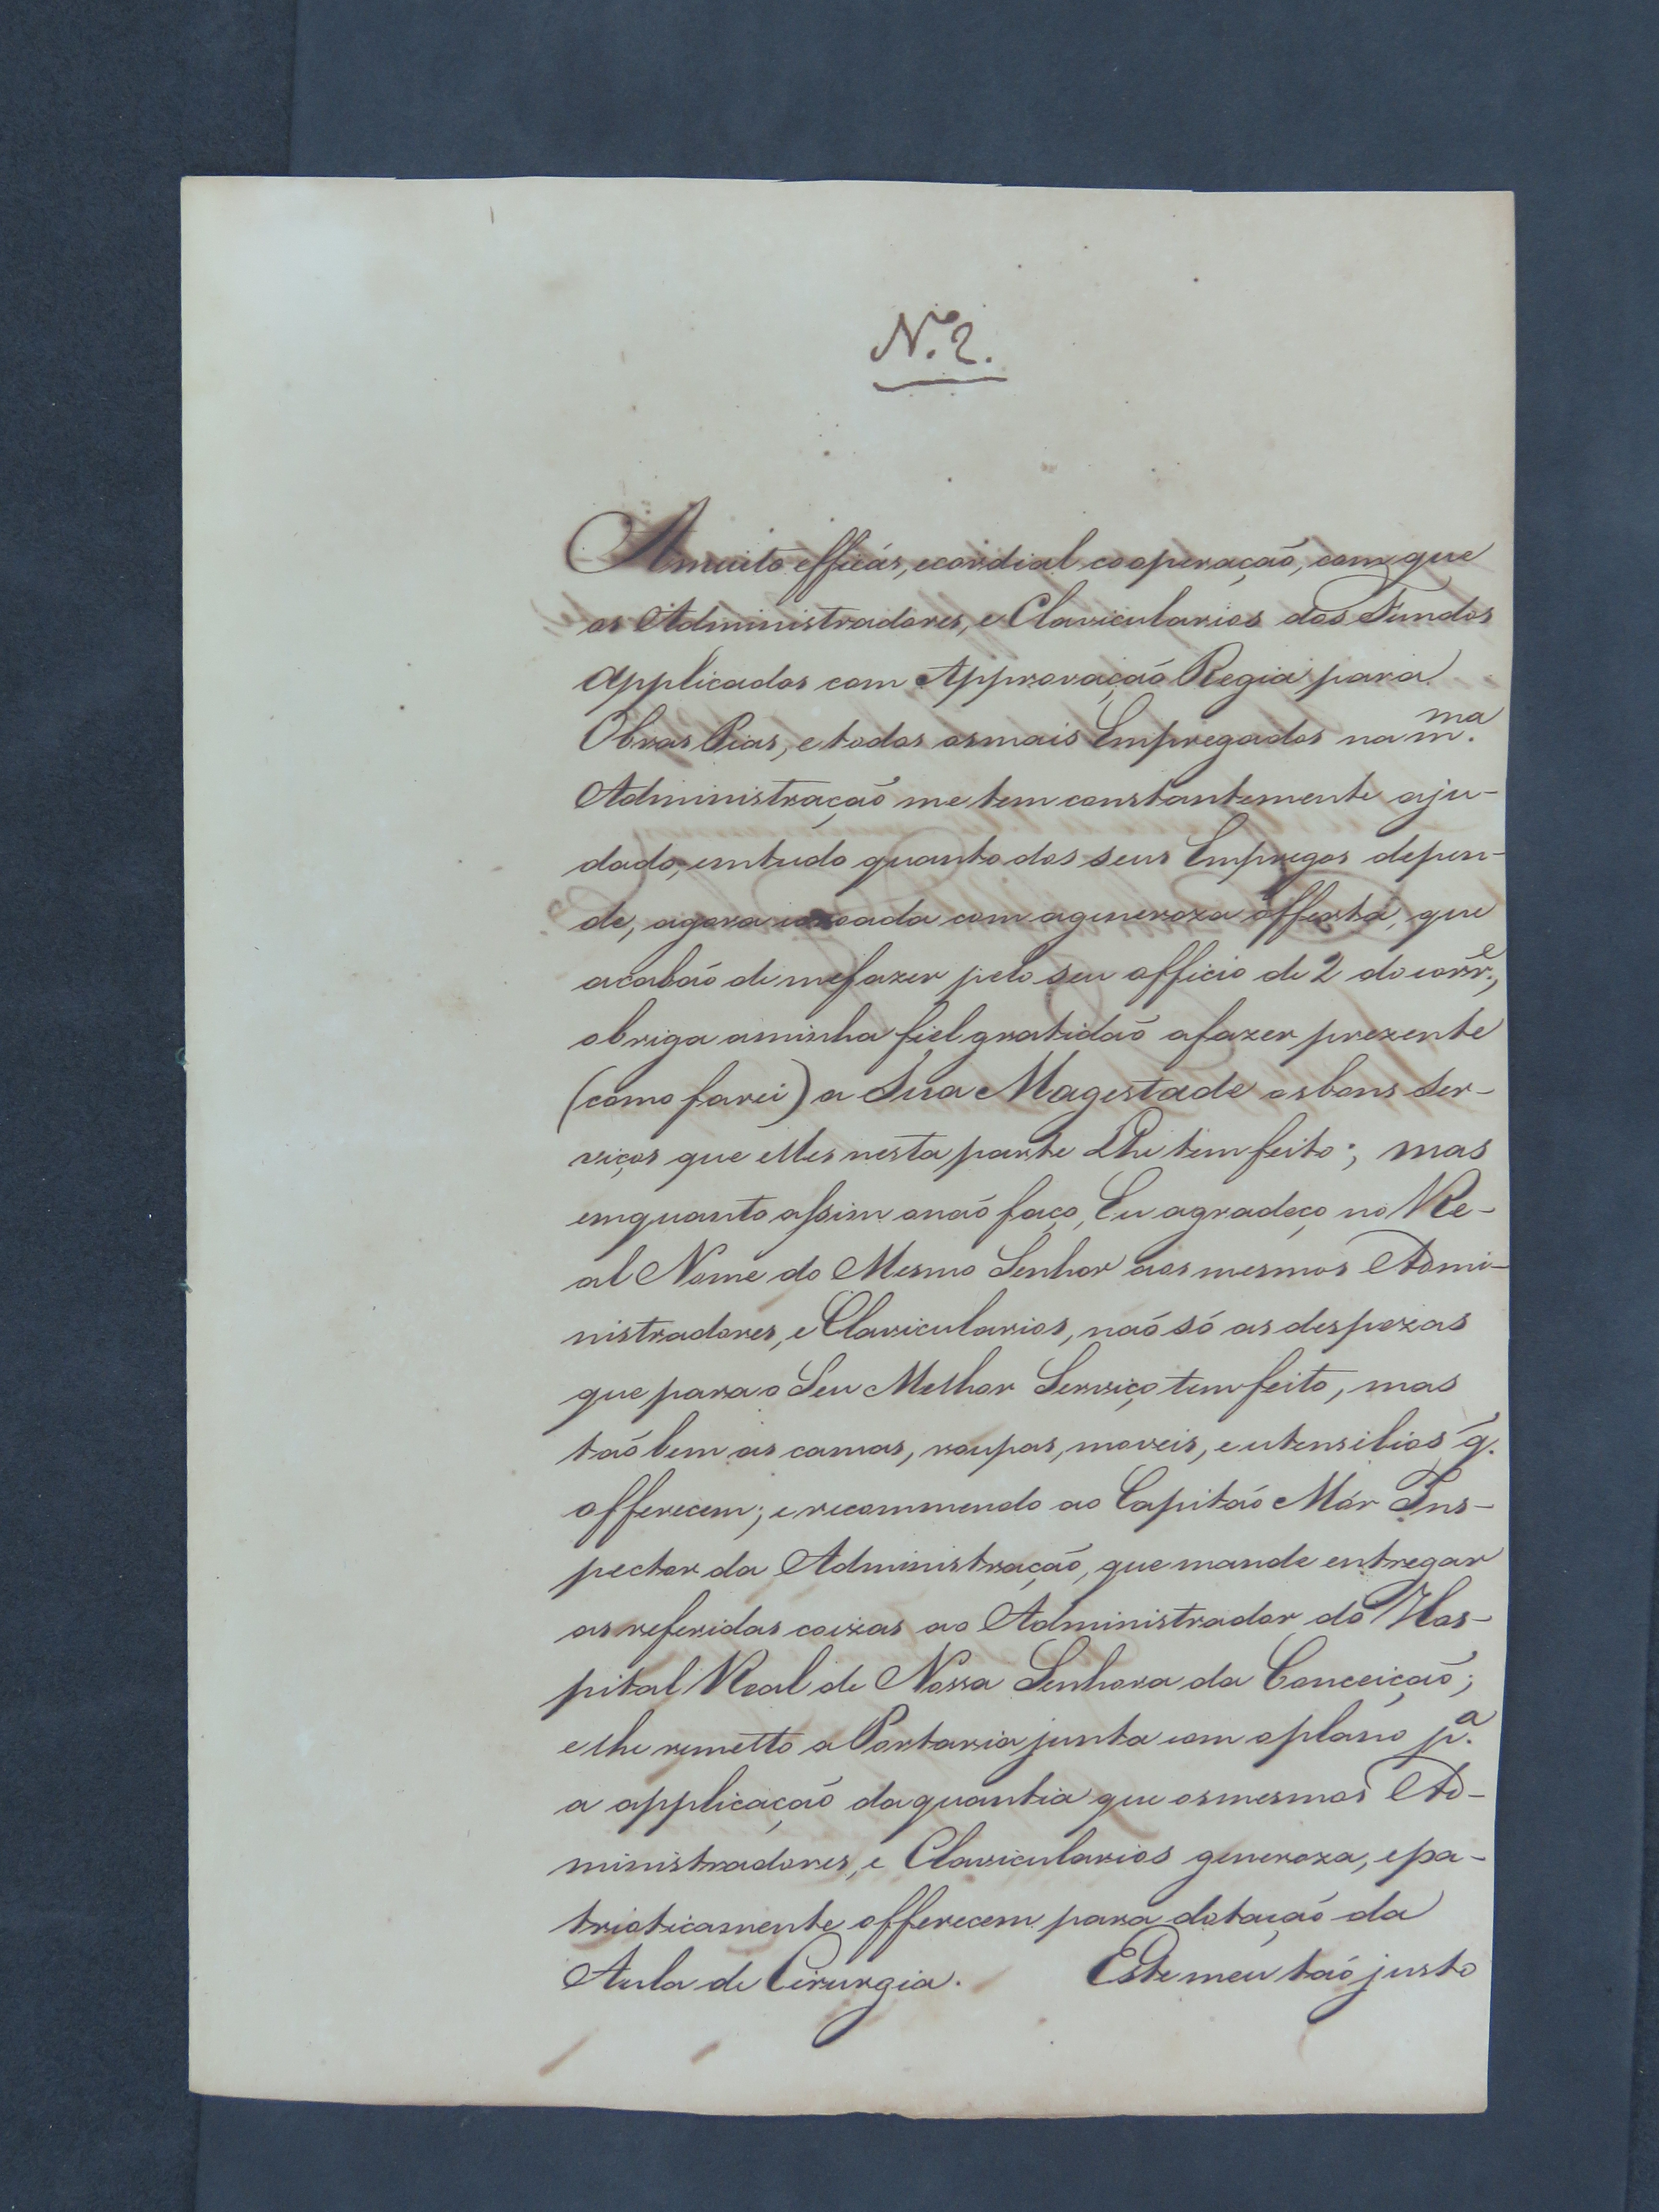 N.º 2.
A muito efficás, e cordial cooperação, com que
os Administradores, e Clavicularios dos Fundos
applicados com Approvação Regia para
Obras Pias, e todos os mais Empregados na m.ma
Administração me tem constantemente aju-
dado, em tudo quanto dos seus Empregos depen-
de, agora coroada com a generoza offerta, que
acabão de me fazer pelo seu officio de 2 do corr.e,
obriga a minha fiel gratidão a fazer prezente
(como farei) a Sua Magestade os bons Ser-
viços que elles nesta parte Lhe tem feito; mas
emquanto assim o não faço, Eu agradeço no Re-
al Nome do Mesmo Senhor aos mesmos Admi-
nistradores, e Clavicularios, não só as despezas
que para o Seu Melhor Serviço tem feito, mas
tão bem as camas, roupas, moveis, e utensilios q.
offerecem; e recommendo ao Capitão Mór Ins-
pector da Administração, que mande entregar
as referidas coizas ao Administrador do Hos-
pital Real de Nossa Senhora da Conceição;
e lhe remetto a Portaria junta com o plano p.a
a applicação da quantia que os mesmos Ad-
ministradores, e Clavicularios generoza, e pa-
trioticamente offerecem para dotação da
Aula de Cirurgia. Este meu tão justo